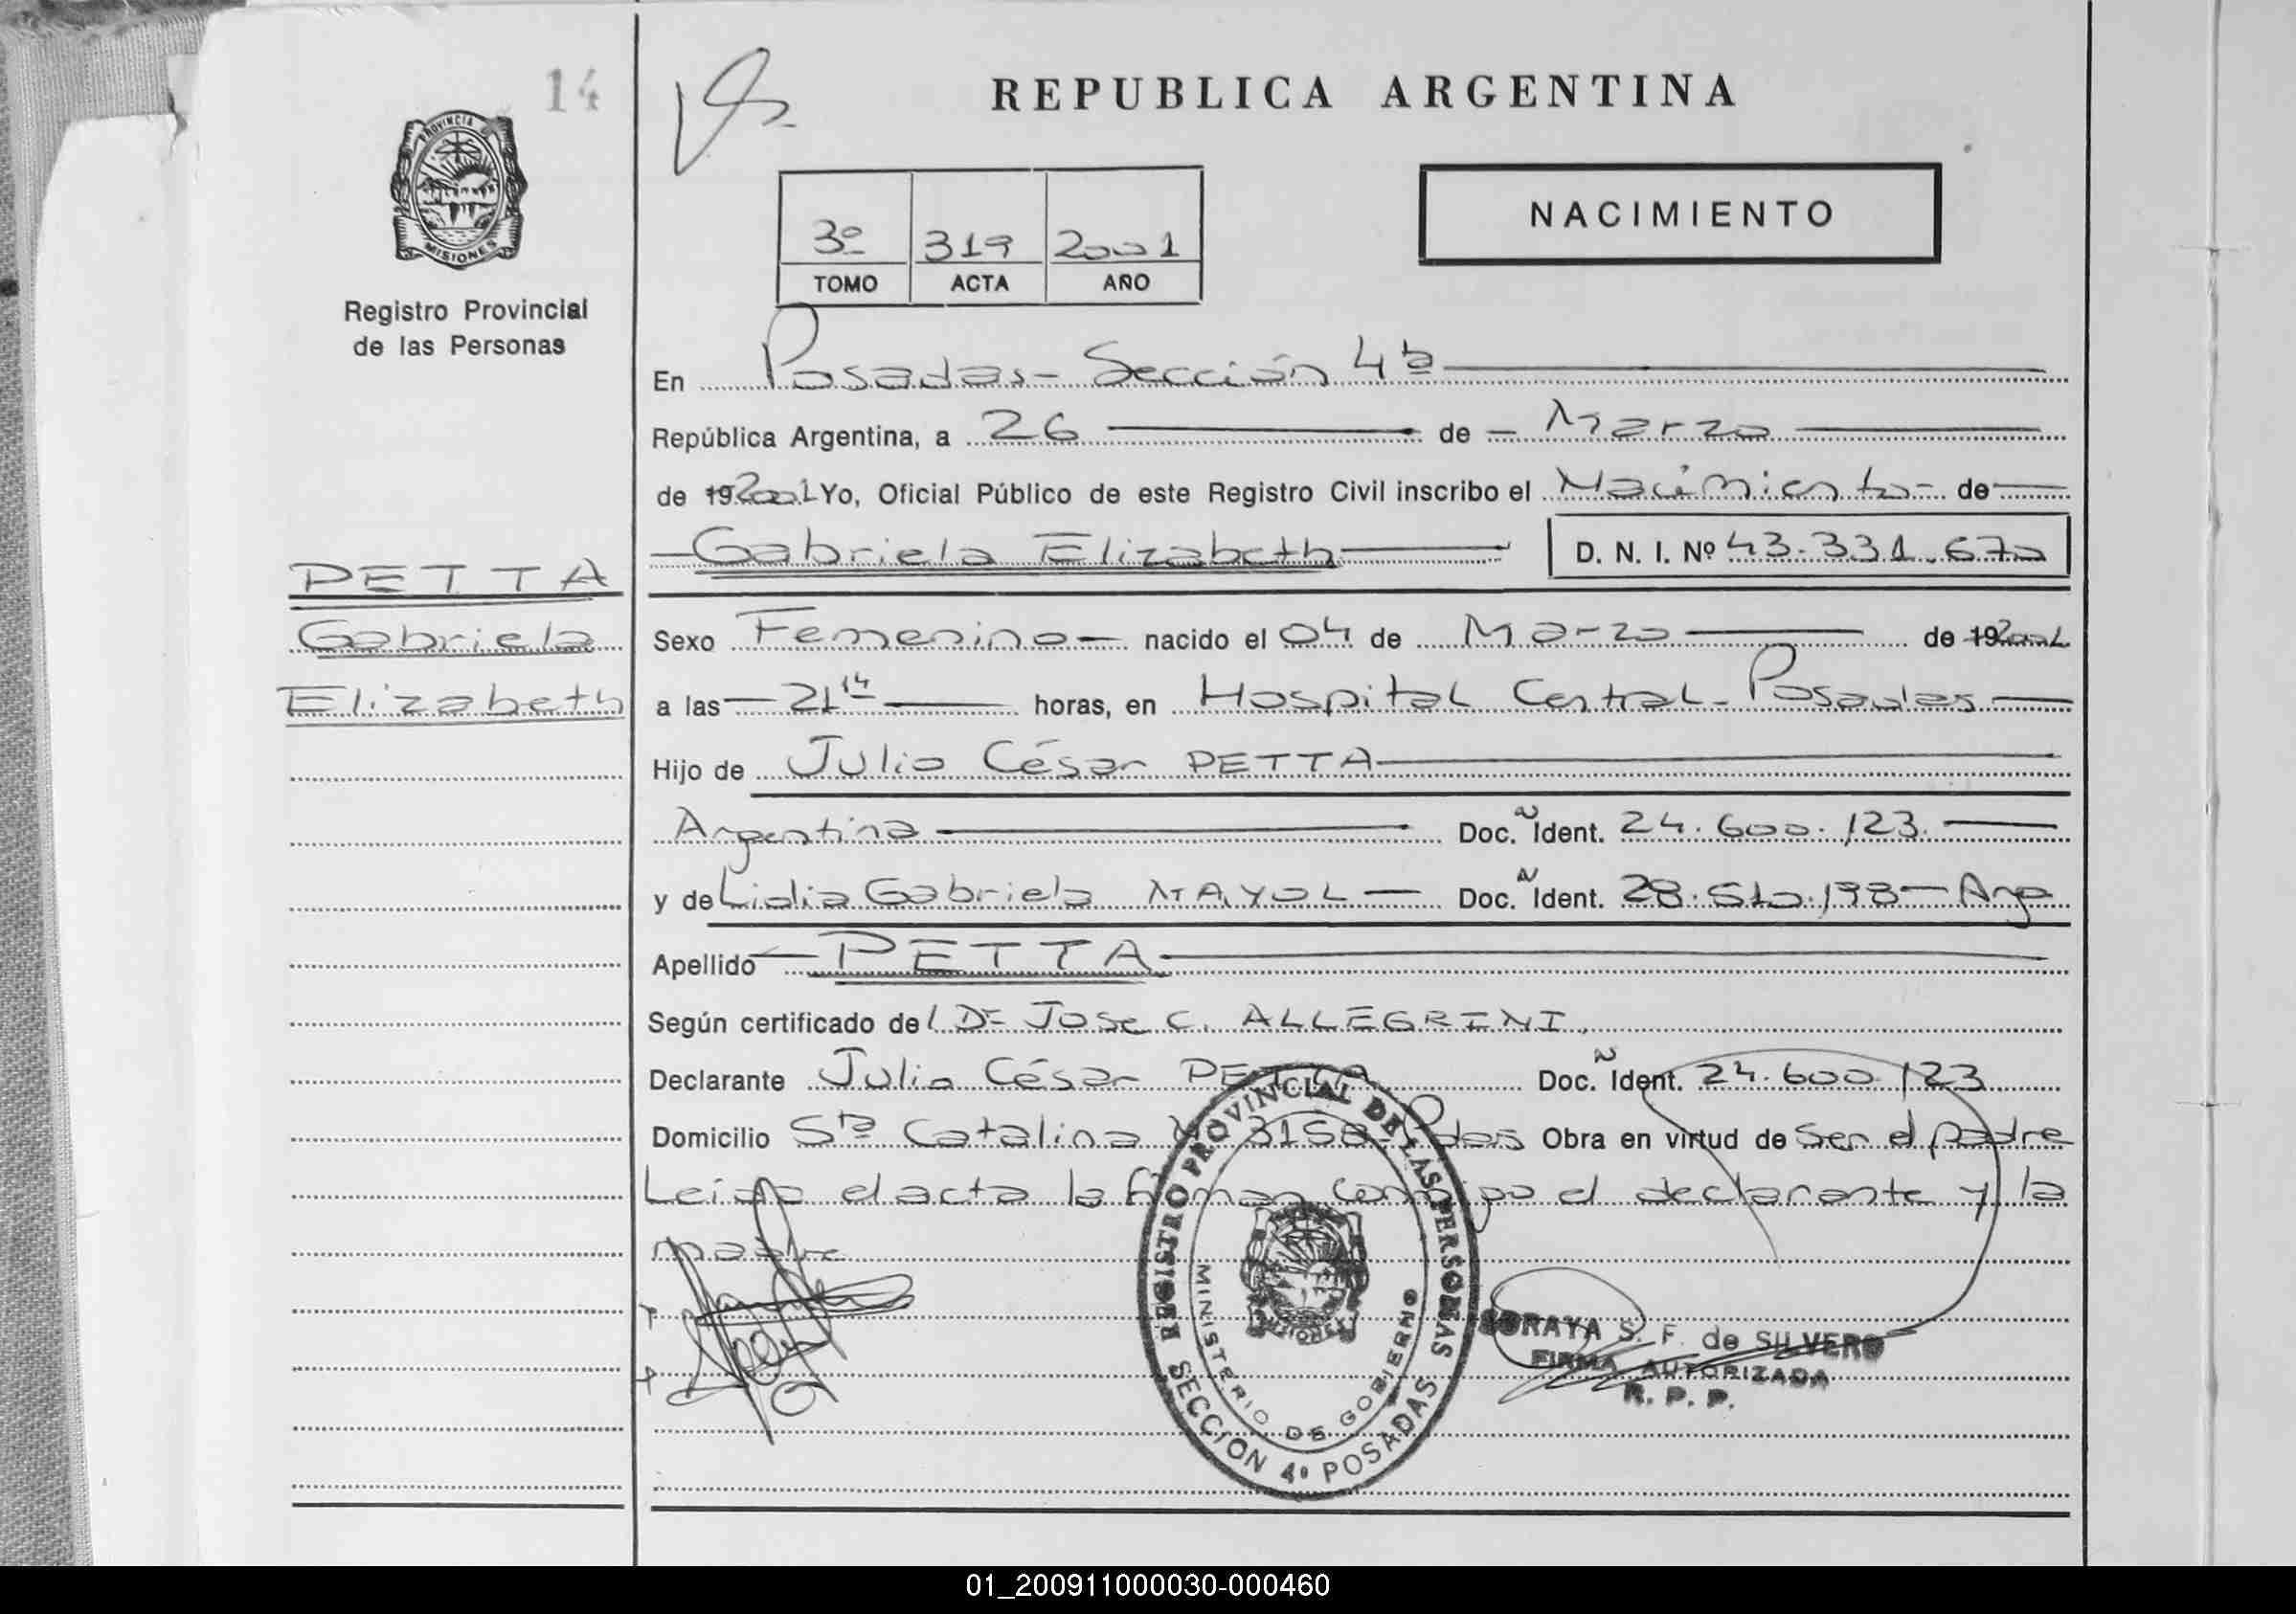 14
PROVINCIA
MISIONES
Registro Provincial
de las Personas
PETTA
Gabriela
Elizabeth
REPUBLICA ARGENTINA
3º 319 2001
TOMO ACTA AÑO
NACIMIENTO
En Posadas - Sección 4ª
República Argentina, a 26 de Marzo
de 19 2001 Yo, Oficial Público de este Registro Civil inscribo el Nacimiento - de
Gabriela Elizabeth D. N. I. Nº 43.331.670
Sexo Femenino nacido el 04 de Marzo de 19 2001
a las 21 14 horas, en Hospital Central - Posadas
Hijo de Julio César PETTA
Argentina Doc. Ident. 24.600.123
y de Lidia Gabriela MAYOL Doc. Ident. 28.510.198 - Arg
Apellido PETTA
Según certificado de l Dr Jose C. ALLEGRINI.
Declarante Julio César PETTA Doc. Ident. 24.600.123
Domicilio Sta Catalina Nº 3158 Pdas Obra en virtud de Ser el padre
Leida el acta la firman conmigo el declarante y la
madre
REGISTRO PROVINCIAL DE LAS PERSONAS
MINISTERIO DE GOBIERNO
SECCION 4ª POSADAS
SORAYA S. F. de SILVERO
FIRMA AUTORIZADA
R. P. P.
01_200911000030-000460